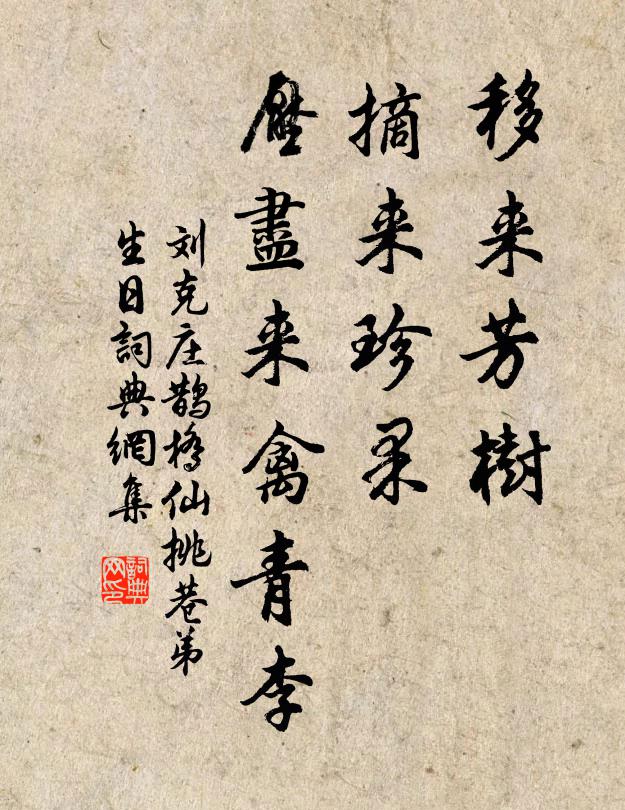 移来芳樹
摘来珍果
壓盡来禽青李
刘克庄鵲橋仙桃巷弟
生日詞典網集
詞典
网印